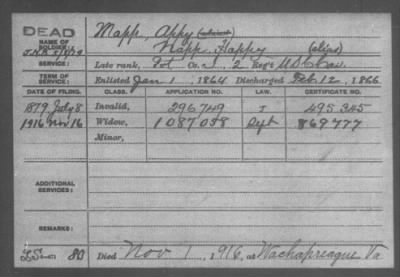 DEAD
NAME OF SOLDIER:
Mapp, Appy
Napp, Happy (alias)
TERM OF SERVICE:
Late rank, Pvt Co. I, 2 Reg't U S C Cav.
Enlisted Jan 1, 1864 Discharged Feb. 12, 1866
DATE OF FILING. CLASS. APPLICATION NO. LAW. CERTIFICATE NO.
1879 July 8 Invalid, 296749 J 495345
1916 Nov 16 Widow, 1087058 Sept 869777
Minor,
ADDITIONAL SERVICES:
REMARKS:
Died Nov 1, 1916, at Wachapreague Va